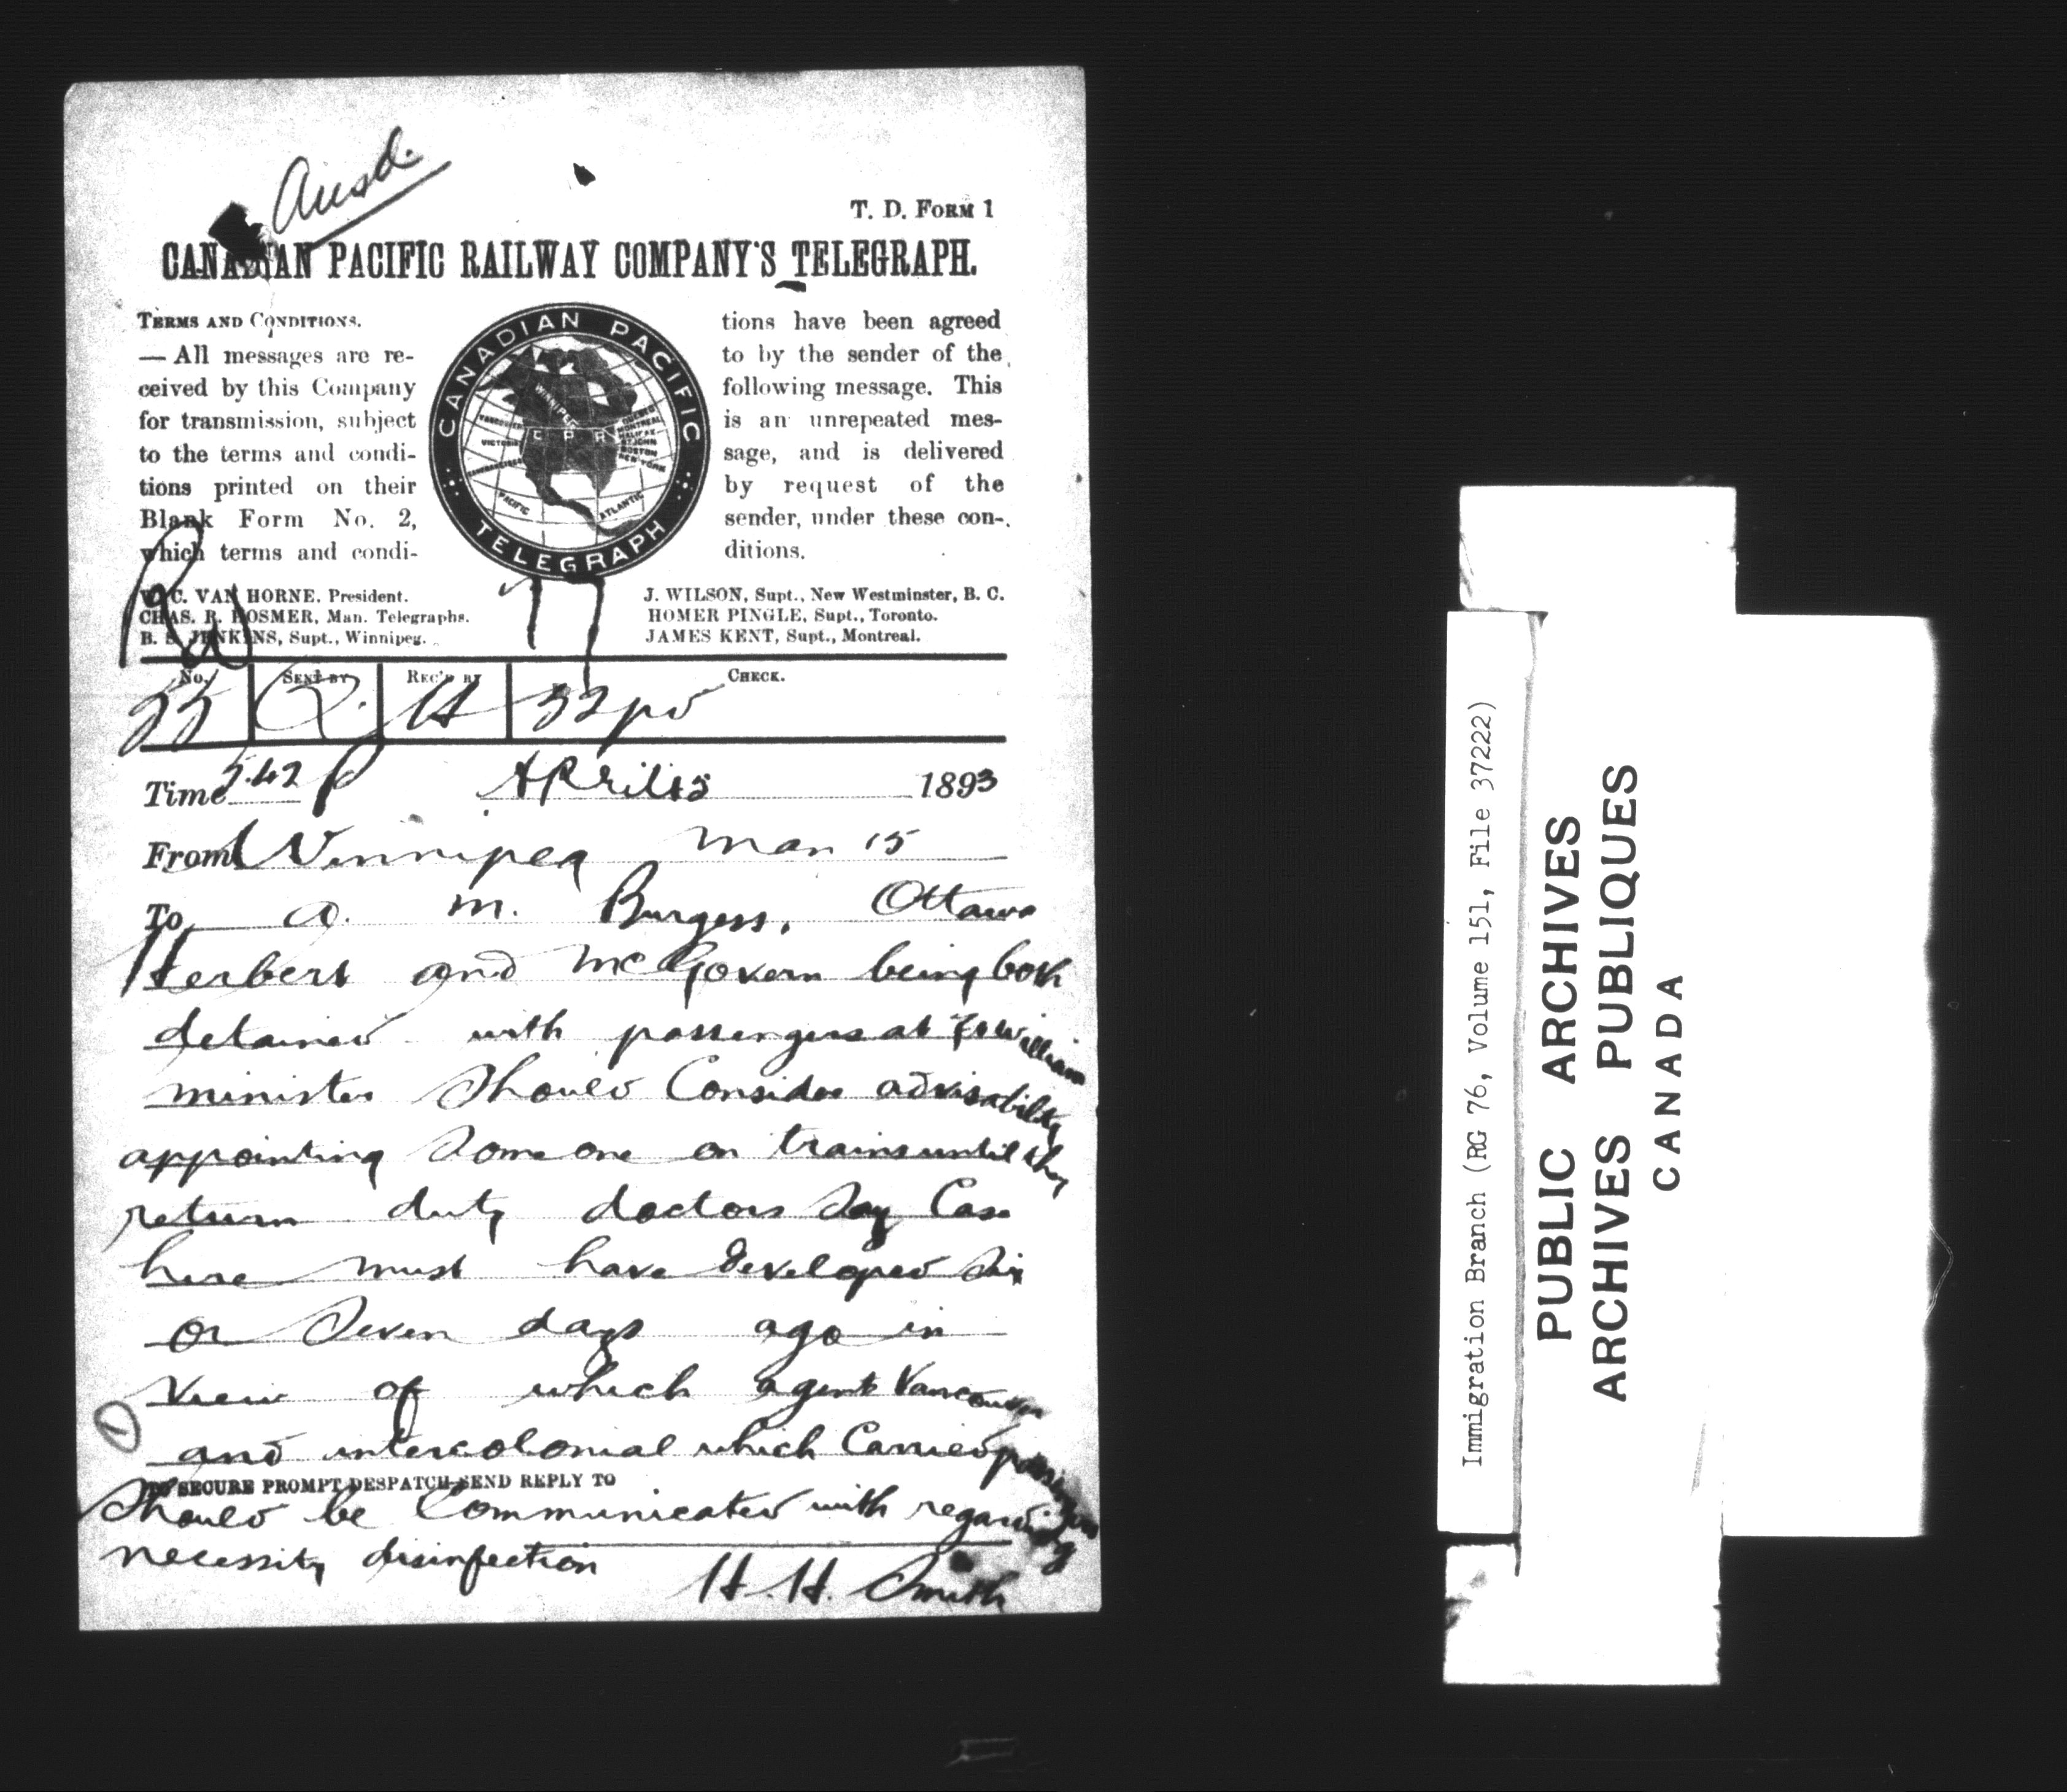 Ansd.
T. D. FORM 1
CANADIAN PACIFIC RAILWAY COMPANY'S TELEGRAPH.
TERMS AND CONDITIONS.
— All messages are re-
ceived by this Company
for transmission, subject
to the terms and condi-
tions printed on their
Blank Form No. 2,
which terms and condi-
CANADIAN PACIFIC
TELEGRAPH
WINNIPEG
VANCOUVER
VICTORIA
C P R
MONTREAL
HALIFAX
ST JOHN
BOSTON
NEW YORK
PACIFIC
ATLANTIC
tions have been agreed
to by the sender of the
following message. This
is an unrepeated mes-
sage, and is delivered
by request of the
sender, under these con-
ditions.
W. C. VAN HORNE, President.
CHAS. R. HOSMER, Man. Telegraphs.
B. S. JENKINS, Supt., Winnipeg.
J. WILSON, Supt., New Westminster, B. C.
HOMER PINGLE, Supt., Toronto.
JAMES KENT, Supt., Montreal.
No. SENT BY REC'D BY CHECK.
H
Time 5.42 P April 15 1893
From Winnipeg Man 15
To A. M. Burgess, Ottawa
Herbert and McGovern being both
detained with passengers at Ft William
minister Should Consider advisability
appointing Someone on trains until they
return duty doctors Say Case
here must have developed Six
or Seven days ago in
view of which agent Vancouver
and intercolonial which Carried passengers
TO SECURE PROMPT DESPATCH SEND REPLY TO
Should be Communicated with regarding
necessity disinfection
H. H. Smith
Immigration Branch (RG 76, Volume 151, File 37222)
PUBLIC ARCHIVES
ARCHIVES PUBLIQUES
CANADA